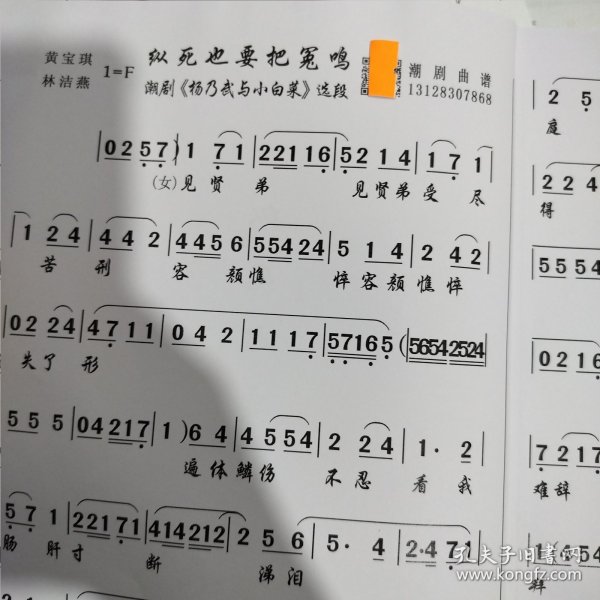 黄宝琪
林洁燕
1=F
纵死也要把冤鸣
潮剧《杨乃武与小白菜》选段
潮剧曲谱
13128307868
0257 1 71 22116 5214 171
(女)见贤弟 见贤弟受尽
1 24 442 4456 55424 514 242
苦刑 容颜憔 悴容颜憔悴
0224 4711 042 1117 57165 (56542524
失了形
555 04217 1)64 4554 224 1·2
遍体鳞伤 不忍看我
571 22171 414212 256 5·4 2·471
肠肝寸断 涕泪
25
庭
224
得
5554
0216
7217
难辞
孔夫子旧书网
www.kongfz.com